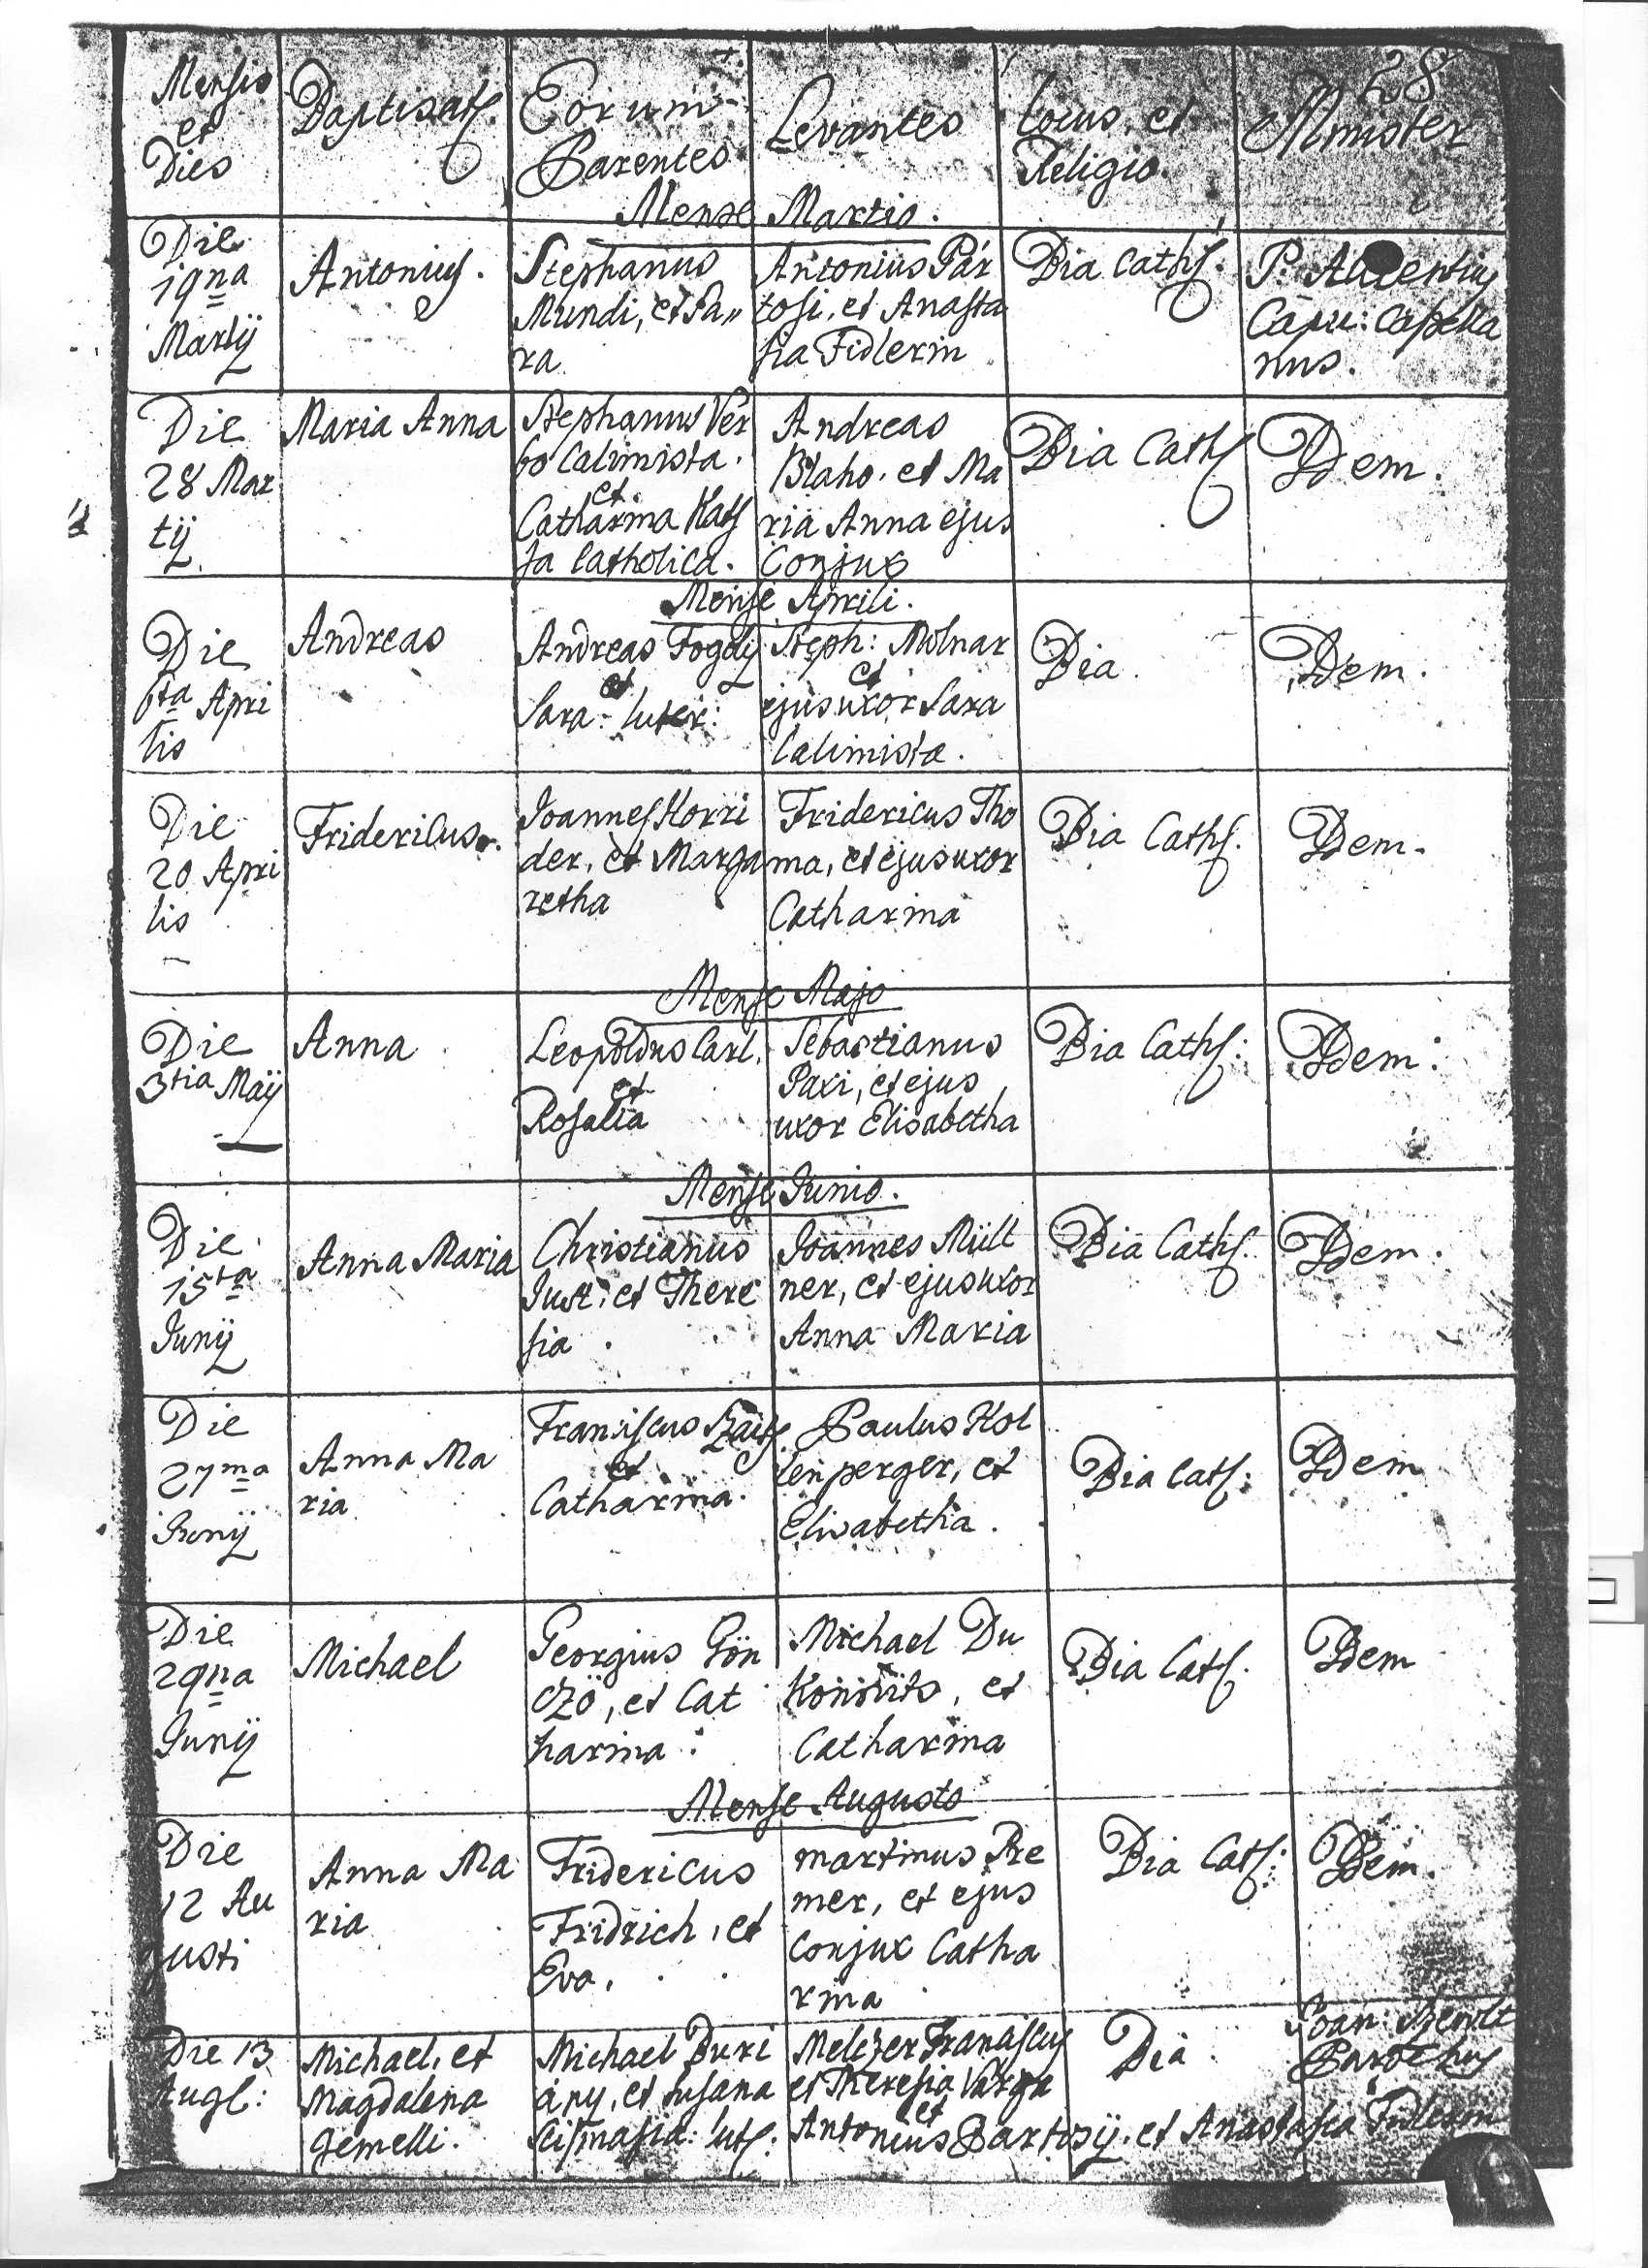 28
Mensis
et
Dies
Baptisatq.
Eorum
Parentes
Levantes
Locus, et
Religio.
Minister
Mense Martio.
Die
19na
Martij
Antonius.
Stephanus
Mundi, et Sa„
ra
Antonius Pár
tosi, et Anasta
sia Fidlerin
Dia Caths.
P. Auxentius
Capu: Capella
nus.
Die
28 Mar
tij.
Maria Anna
Stephanus Ver
bo Calvinista.
et
Catharina
Catholica.
Andreas
Blaho. et Ma
ria Anna ejus
Conjux
Dia Caths
Idem.
Mense Aprili.
Die
6ta Apri
lis
Andreas
Andreas Fogdy
et
Sara: Luter:
Steph: Molnar
et
ejus uxor Sara
Calvinista.
Dia.
Idem.
Die
20 Apri
lis
Fridericus.
Joannes Horri
der, et Marga
retha
Fridericus Tho
ma, et ejus uxor
Catharina
Dia Caths.
Idem.
Mense Majo
Die
3tia Maij
Anna
Leopoldus Carl.
et
Rosalia
Sebastianus
Paxi, et ejus
uxor Elisabetha
Dia Caths:
Idem:
Mense Junio.
Die
15ta
Junij
Anna Maria
Christianus
Just: et There
sia.
Joannes Müllt
ner, et ejus uxor
Anna Maria
Dia Caths.
Idem.
Die
27ma
Junij
Anna Ma
ria
Franciscus
et
Catharina.
Paulus Hol
lenperger, et
Elisabetha.
Dia Cats:
Idem
Die
29na
Junij
Michael
Georgius Gön
czö, et Cat
harina:
Michael Du
Konovits, et
Catharina
Dia Cats.
Idem
Mense Augusto
Die
12 Au
gusti
Anna Ma
ria
Fridericus
Fridrich, et
Eva.
martinus Pre
mer, et ejus
conjux Catha
rina
Dia Cats:
Idem.
Die 13
Augs:
Michael, et
Magdalena
gemelli.
Michael Duri
ány, et Susana
Luts:
Melczer Franciscus
et Theresia Varga
et
Antonius Partosij. et Anastasia Fidlerin
Dia
Joan:
Parochus